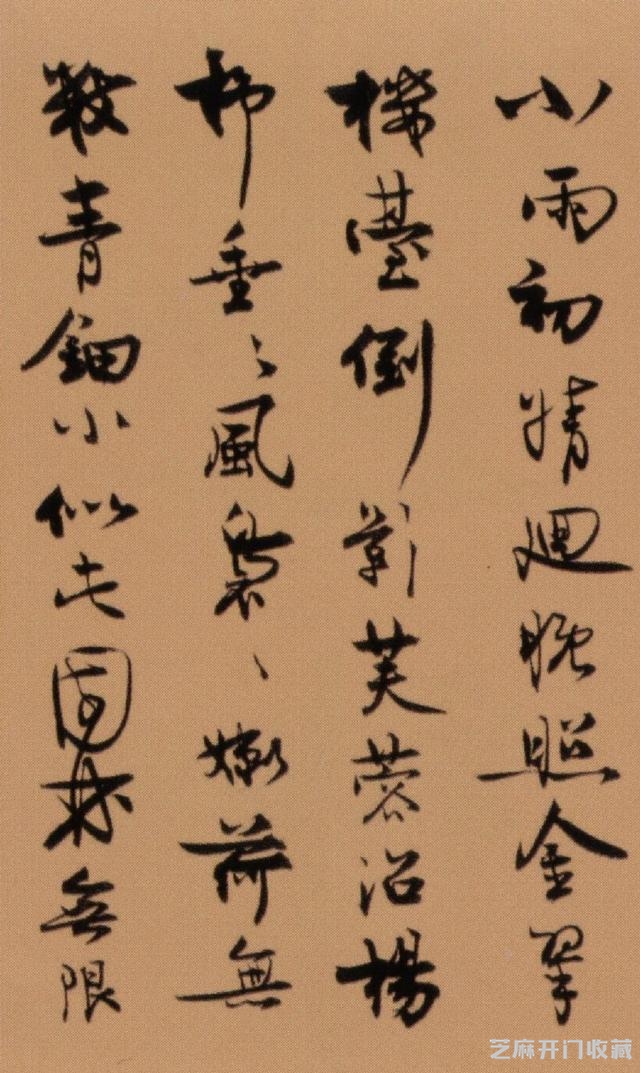 小雨初晴迴晚照金翠
樓臺倒影芙蓉沼楊
柳垂〻風裊〻嫩荷無
數青鈿小似此園林無限
芝麻开门收藏